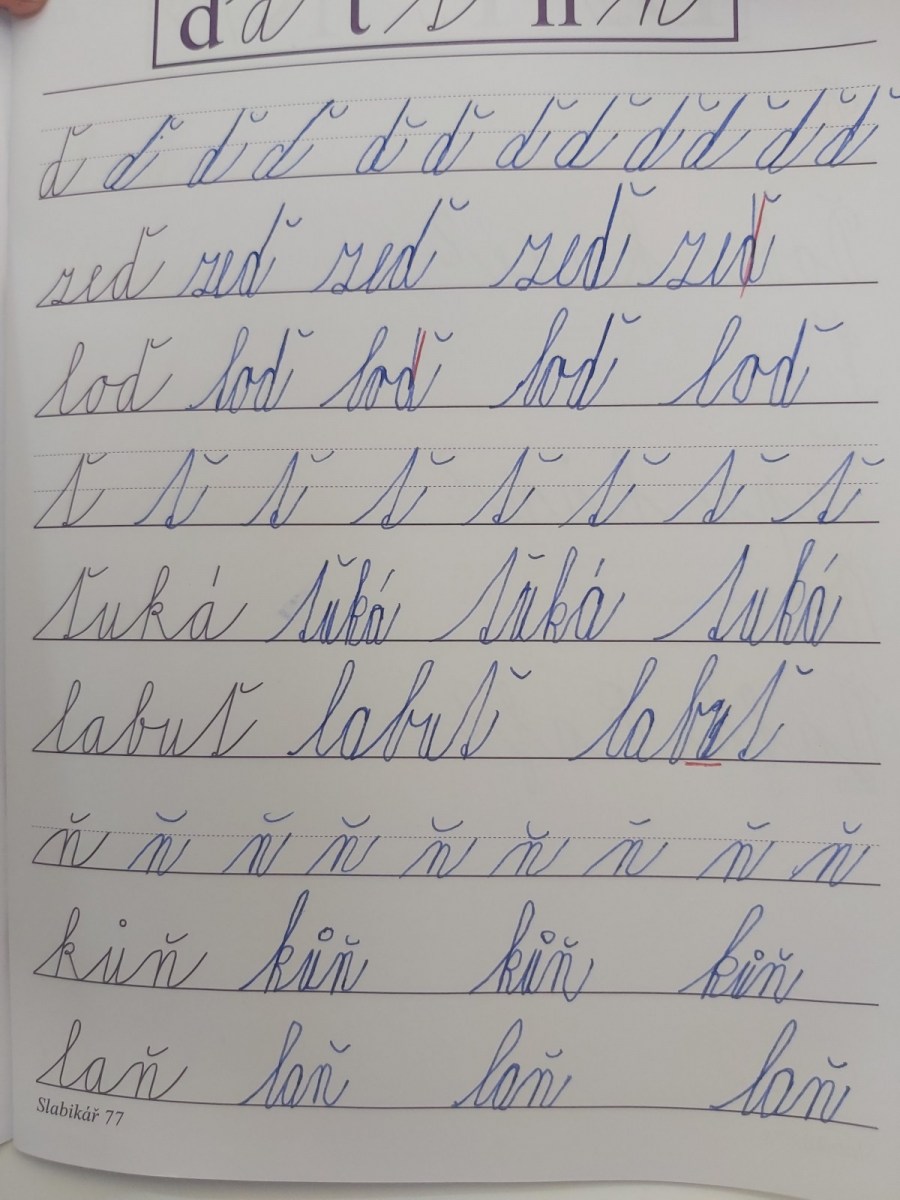 ď ď ď ď ď ď ď ď ď ď ď ď
zeď zeď zeď zeď zeď
loď loď loď loď loď
ť ť ť ť ť ť ť ť
ťuká ťuká ťuká tuká
labuť labuť labuť
ň ň ň ň ň ň ň ň ň
kůň kůň kůň kůň
laň laň laň laň
Slabikář 77